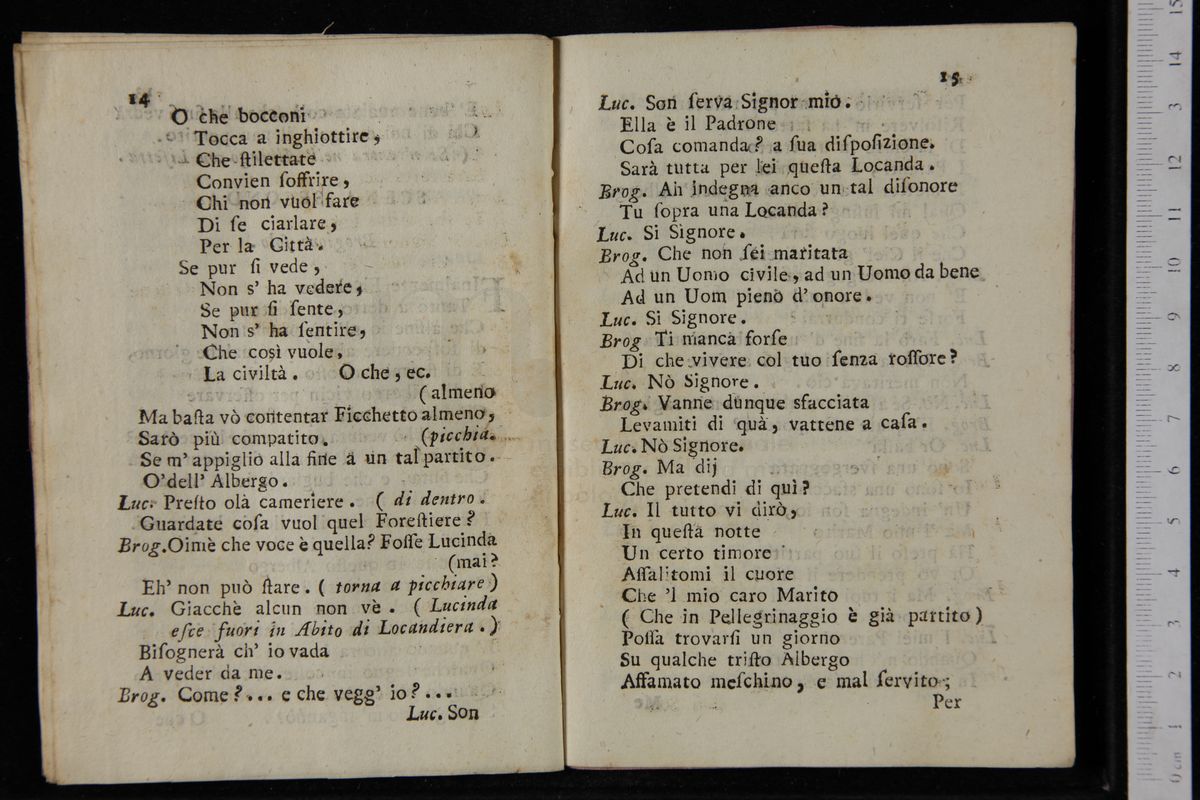 14
O che bocconi
Tocca a inghiottire,
Che ſtilettate
Convien ſoffrire,
Chi non vuol fare
Di ſe ciarlare,
Per la Città.
Se pur ſi vede,
Non s' ha vedere,
Se pur ſi ſente,
Non s' ha ſentire,
Che così vuole,
La civiltà. O che, ec.
(almeno
Ma baſta vò contentar Ficchetto almeno,
Sarò più compatito. (picchia.
Se m' appiglio alla fine a un tal partito.
O' dell' Albergo.
Luc. Preſto olà cameriere. ( di dentro.
Guardate coſa vuol quel Foreſtiere?
Brog. Oimè che voce è quella? Foſſe Lucinda
(mai?
Eh' non può ſtare. ( torna a picchiare )
Luc. Giacchè alcun non vè. ( Lucinda
eſce fuori in Abito di Locandiera. )
Biſognerà ch' io vada
A veder da me.
Brog. Come?... e che vegg' io?...
Luc. Son
15
Luc. Son ſerva Signor mio.
Ella è il Padrone
Coſa comanda? a ſua diſpoſizione.
Sarà tutta per lei queſta Locanda.
Brog. Ah indegna anco un tal diſonore
Tu ſopra una Locanda?
Luc. Si Signore.
Brog. Che non ſei maritata
Ad un Uomo civile, ad un Uomo da bene
Ad un Uom pieno d' onore.
Luc. Si Signore.
Brog Ti manca forſe
Di che vivere col tuo ſenza roſſore?
Luc. Nò Signore.
Brog. Vanne dunque sfacciata
Levamiti di quà, vattene a caſa.
Luc. Nò Signore.
Brog. Ma dij
Che pretendi di quì?
Luc. Il tutto vi dirò,
In queſta notte
Un certo timore
Aſſalitomi il cuore
Che 'l mio caro Marito
( Che in Pellegrinaggio è già partito )
Poſſa trovarſi un giorno
Su qualche triſto Albergo
Affamato meſchino, e mal ſervito;
Per